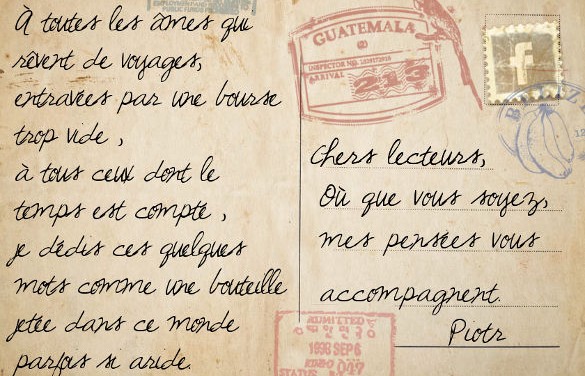 À toutes les âmes qui
rêvent de voyages,
entravées par une bourse
trop vide,
à tous ceux dont le
temps est compté,
je dédis ces quelques
mots comme une bouteille
jetée dans ce monde
parfois si aride.
GUATEMALA
(2)
INSPECTOR NO.
ARRIVAL
213
f
Chers lecteurs,
Où que vous soyez,
mes pensées vous
accompagnent.
Piotr
ADMITTED
1998 SEP 6
STATUS
047